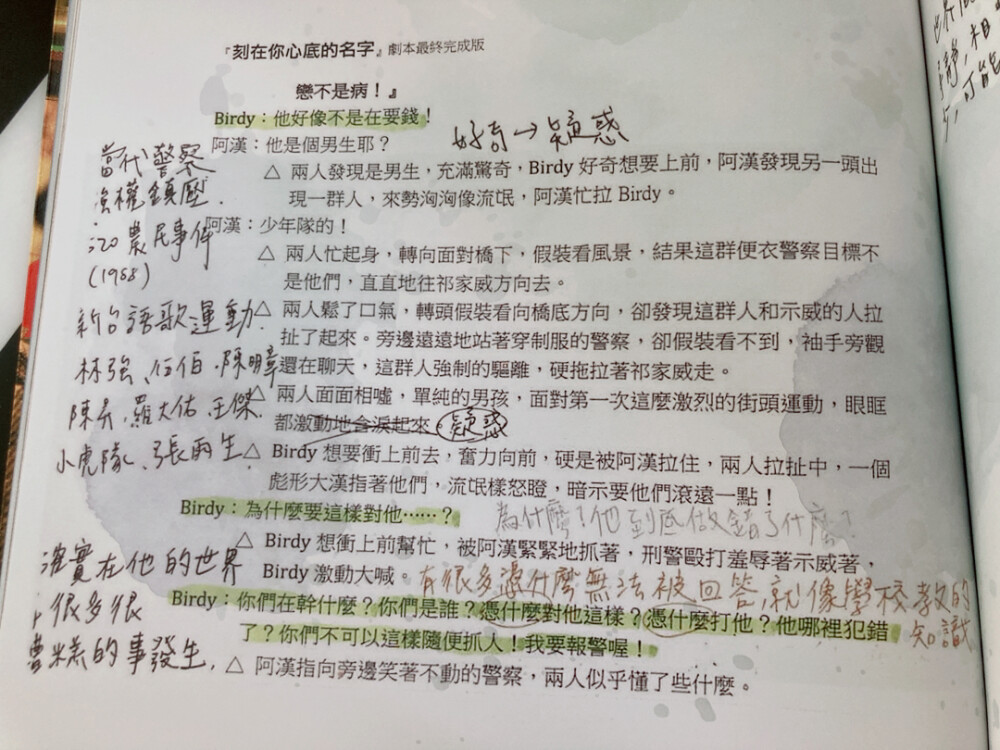 『刻在你心底的名字』劇本最終完成版
戀不是病！』
Birdy：他好像不是在要錢！
阿漢：他是個男生耶？
好奇→疑惑
△ 兩人發現是男生，充滿驚奇，Birdy 好奇想要上前，阿漢發現另一頭出
現一群人，來勢洶洶像流氓，阿漢忙拉 Birdy。
阿漢：少年隊的！
△ 兩人忙起身，轉向面對橋下，假裝看風景，結果這群便衣警察目標不
是他們，直直地往祁家威方向去。
△ 兩人鬆了口氣，轉頭假裝看向橋底方向，卻發現這群人和示威的人拉
扯了起來。旁邊遠遠地站著穿制服的警察，卻假裝看不到，袖手旁觀
還在聊天，這群人強制的驅離，硬拖拉著祁家威走。
△ 兩人面面相噓，單純的男孩，面對第一次這麼激烈的街頭運動，眼眶
都激動地含淚起來。
疑惑
△ Birdy 想要衝上前去，奮力向前，硬是被阿漢拉住，兩人拉扯中，一個
彪形大漢指著他們，流氓樣怒瞪，暗示要他們滾遠一點！
Birdy：為什麼要這樣對他……？
為什麼？他到底做錯了什麼？
△ Birdy 想衝上前幫忙，被阿漢緊緊地抓著，刑警毆打羞辱著示威著，
Birdy 激動大喊。
有很多憑什麼無法被回答，就像學校教的
知識
Birdy：你們在幹什麼？你們是誰？憑什麼對他這樣？憑什麼打他？他哪裡犯錯
了？你們不可以這樣隨便抓人！我要報警喔！
△ 阿漢指向旁邊笑著不動的警察，兩人似乎懂了些什麼。
當代警察
強權鎮壓.
520 農民事件
(1988)
新台語歌運動.
林強、伍佰、陳明章
陳昇、羅大佑、王傑.
小虎隊、張雨生.
確實在他的世界
很多很
糟糕的事發生.